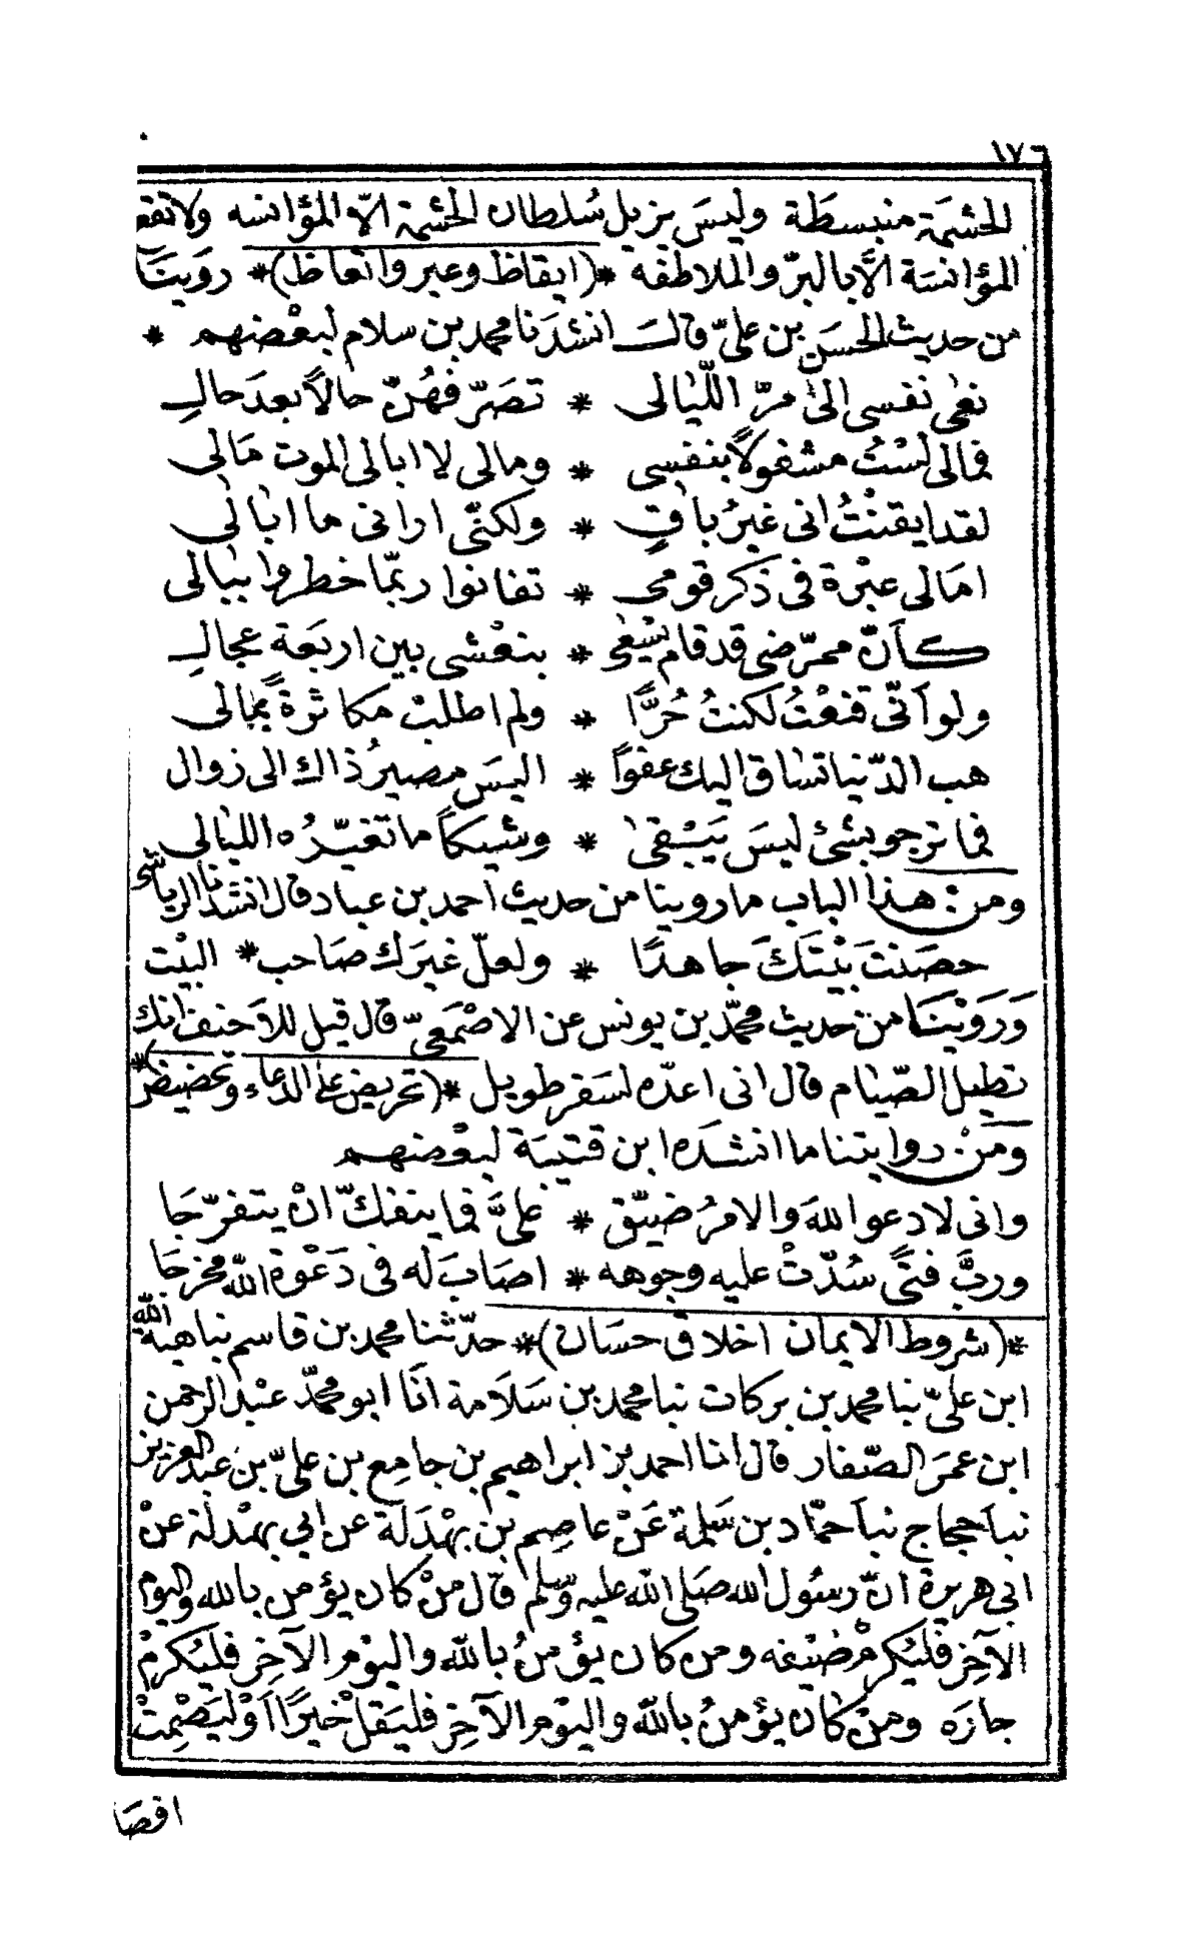 ١٧٦
الحشمَة منبسطَة وليسَ يزيل سُلطان الحشمة الاّ المؤانسه ولا تقع
المؤانسَة الاَّ بالبرّ والملاطفه *(ايقاظ وعبر واتعاظ)* روَينَا
من حديث الحسَن بن علىّ قالـ انشدَنا محمد بن سلام لبعْضهم *
نعٰى نفسى الىٰ مرّ اللّيٰالى * تصَرّفهُنّ حالاً بعدَ حالِ
فمالى لسْتُ مشغولاً بنفسى * ومالى لا ابالى الموت مَالى
لقد ايقنْتُ انى غيرُ باقٍ * ولكنّى ارانى ما ابٰالى
امَالى عبْرة فى ذكر قومى * تفانوا ربّما خطروا ببٰالى
كأنّ ممرّضى قد قام يسْعٰى * بنعْشى بين اربَعة عجالِ
ولو اَنّى قنعْتُ لكنتُ حُرًّا * ولم اطلبْ مكاثرةً بمٰالى
هب الدّنيا تسٰاق اليك عفواً * اليسَ مصيرُ ذاك الى زوال
فما ترجو بشئ ليسَ يَبْقىٰ * وشيكاً ما تغيّرُه الليٰالى
ومن هذا الباب ما روينا من حديث احمد بن عباد قال انشدنا الرياشىّ
حصَنتَ بَيْتَكَ جاهدًا * ولعلّ غيرَك صَاحب* البيْت
وَرَوَيْنَا من حديث محمّد بن يونس عن الاصْمَعىّ قال قيل للاَحنف انك
تطيل الصّيٰام قال انى اعدّه لسَفر طويل *(تحريض على الدعاء وتحضيض)*
وَمَنْ روايتنا ما انشدَه ابن قتيبَة لبعْضهم
وانى لادعو اللهَ والامرُ ضيّق * علىَّ فما ينفكّ انْ يتفرّجَا
وربَّ فتًى سُدّتْ عليه وجوهه * اصَابَ له فى دَعْوة اللّه مخرجَا
*(شروط الايمان اخلاق حسَان)* حدّثنا محمد بن قاسم نبا هبة اللّه
ابن علىّ نبا محمد بن بركات نبا محمد بن سَلَامة اَنَا ابو محمّد عبْد الرحمن
ابن عمَر الصّفار قال انا احمد بن ابراهيم بن جامِع بن علىّ بن عَبد العزيز
نبا حجاج نبا حمّاد بن سَلمة عَنْ عاصِم بن بهْدَلَة عن ابي بهْدلة عنْ
ابى هريرة انّ رسُول الله صَلى الله عليه وَسلم قال منْ كان يؤمن بالله واليوم
الآخِر فليُكرمْ ضيْفه ومن كان يؤمنُ باللّه واليوْم الآخِر فليُكرمْ
جارَه ومنْ كان يؤمنُ باللّه واليوْم الآخِر فليَقلْ خيرًا اَوْليَصْمِتْ
افصَا